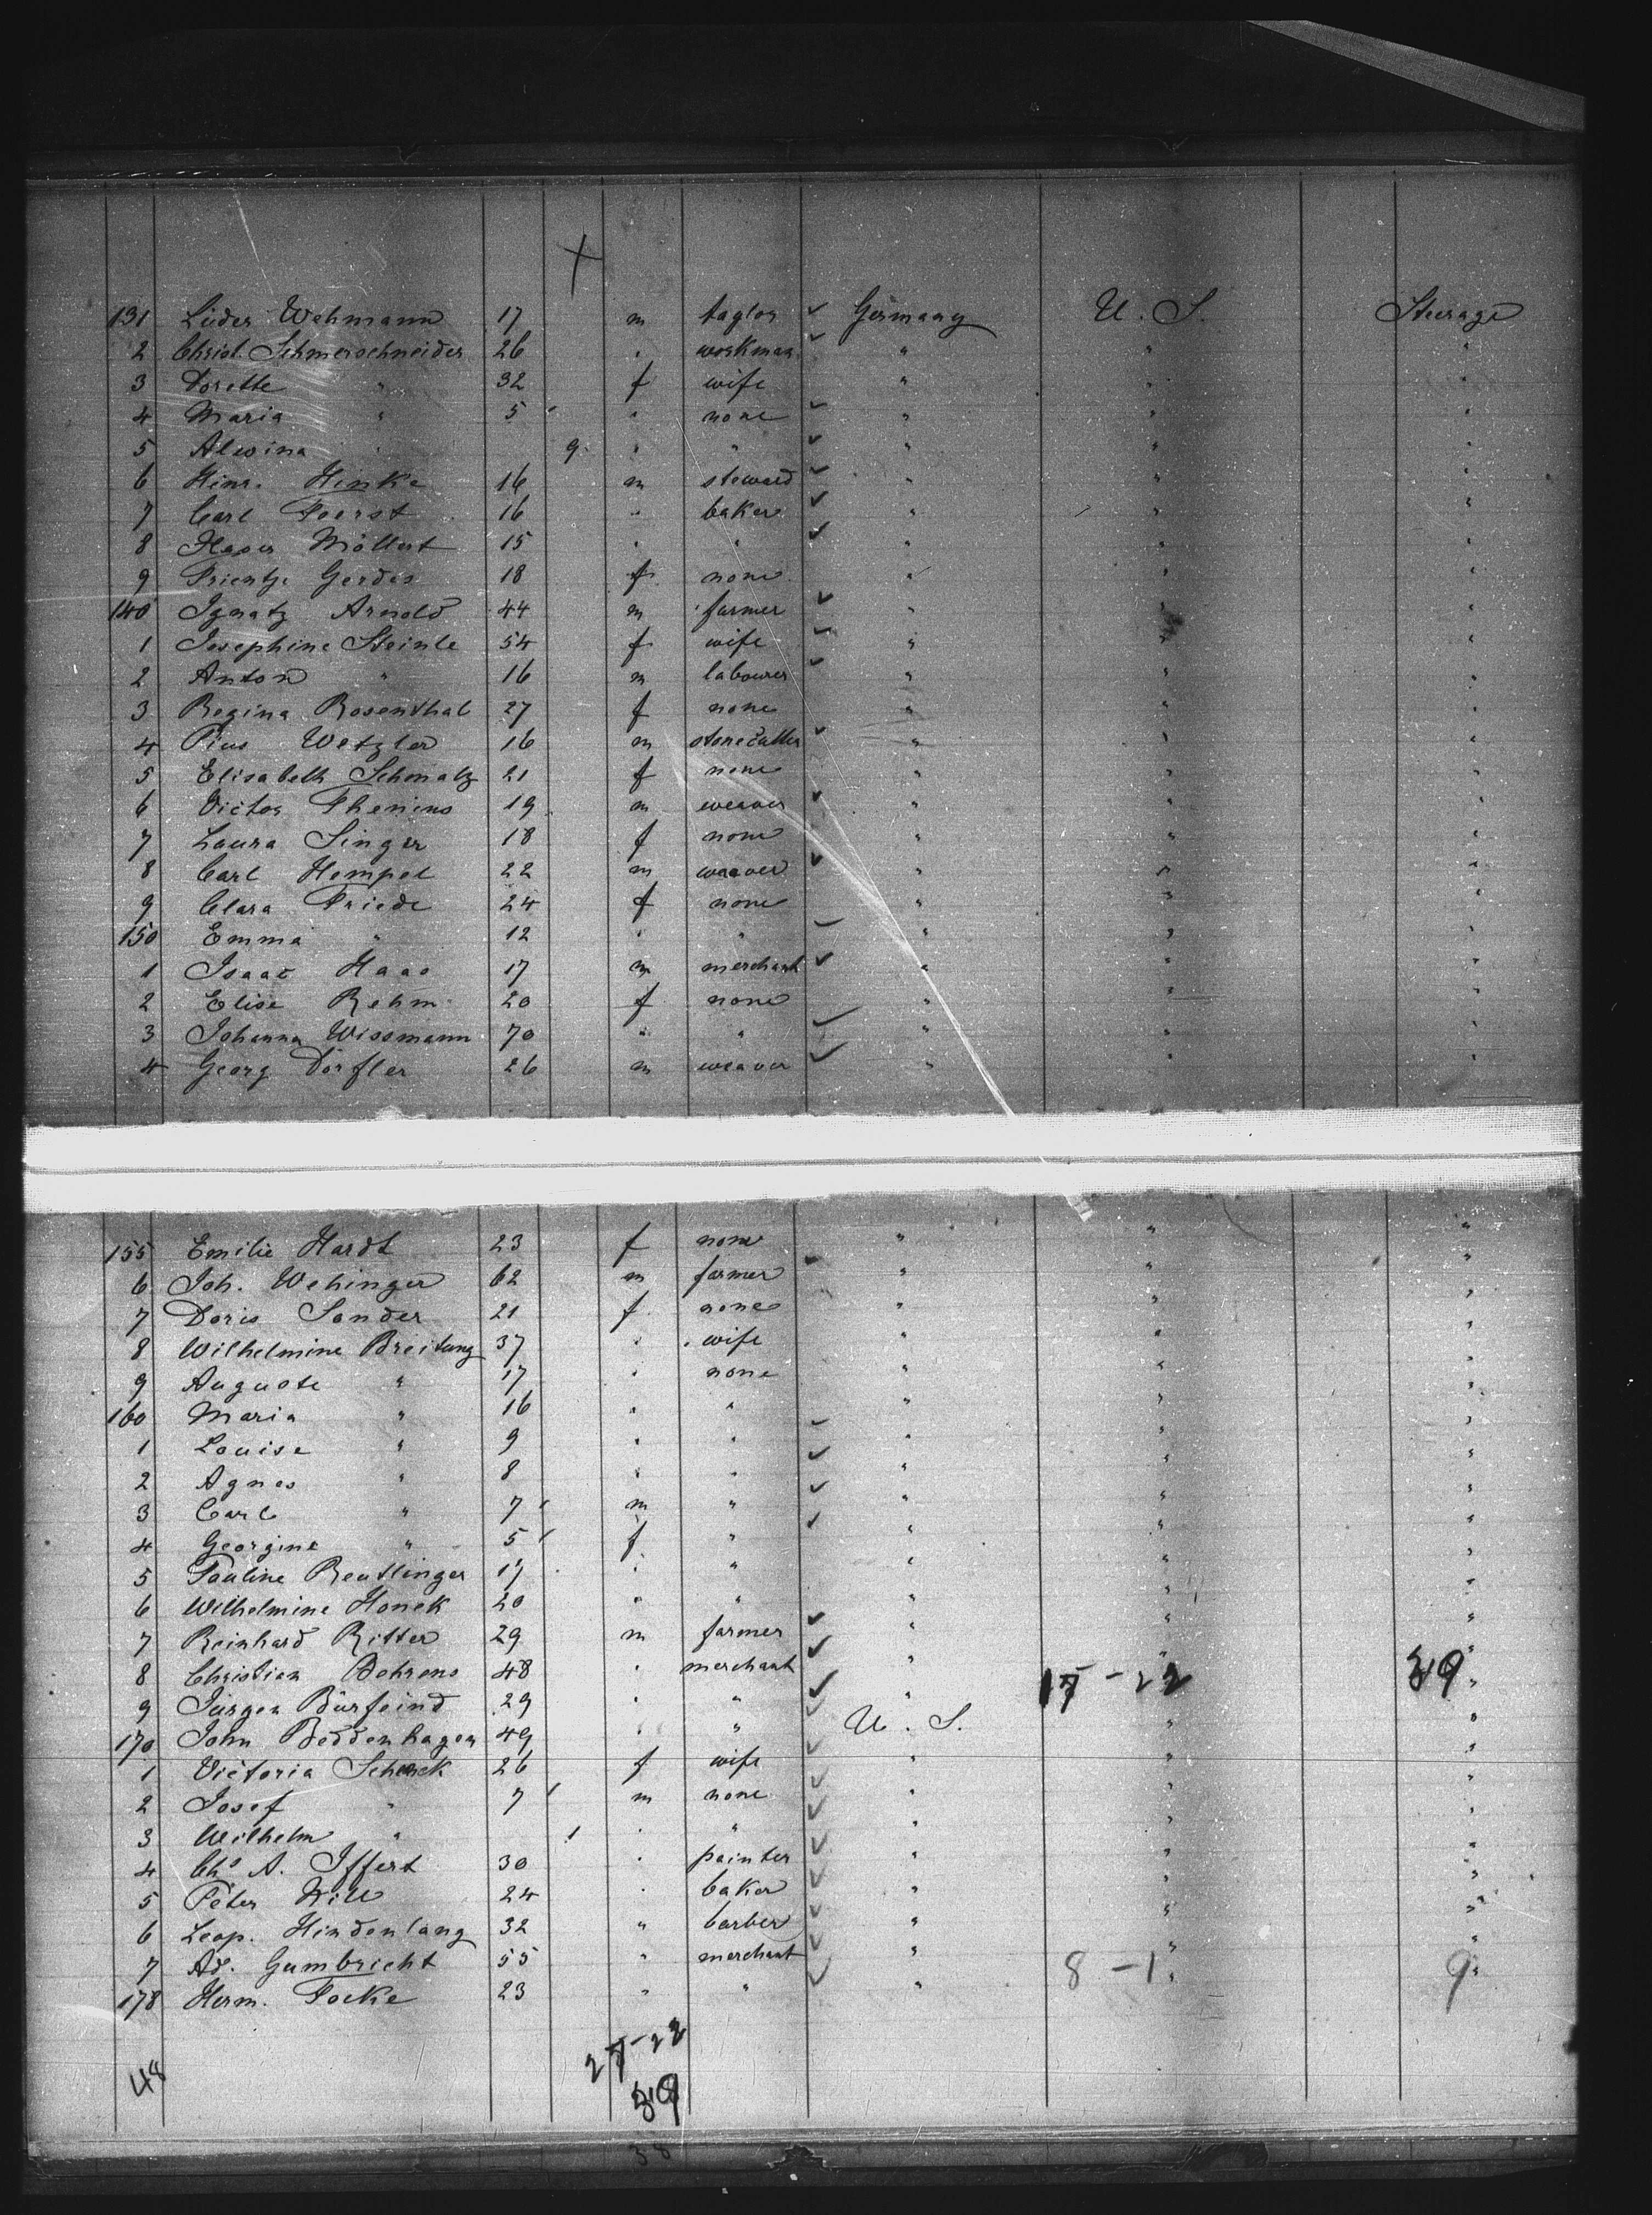 131 Lüder Wehmann 17 m taylor ✓ Germany U. S. Steerage
2 Christ. Schmerschneider 26 " workman ✓ " " "
3 Dorette " 32 f wife " " "
4 Maria " 5 " none ✓ " " "
5 Alwina " 9 " " ✓ " " "
6 Hinr. Hinke 16 m steward ✓ " " "
7 Carl Foerst 16 " baker ✓ " " "
8 Möllert 15 " " ✓ " " "
9 Trientje Gerdes 18 f none " " "
140 Ignatz Arnold 44 m farmer ✓ " " "
1 Josephine Steinle 54 f wife ✓ " " "
2 Anton " 16 m labourer ✓ " " "
3 Regina Rosenthal 27 f none " " "
4 Pius Wetzler 16 m stonecutter ✓ " " "
5 Elisabeth Schmalz 21 f none " " "
6 Victor Thenius 19 m weaver ✓ " " "
7 Laura Singer 18 f none " " "
8 Carl Hempel 22 m weaver ✓ " " "
9 Clara Friede 24 f none " " "
150 Emma " 12 " " ✓ " " "
1 Isaac Haas 17 m merchant ✓ " " "
2 Elise Rehm 20 f none " " "
3 Johanna Wissmann 70 " " ✓ " " "
4 Georg Dörfler 26 m weaver ✓ " " "
155 Emilie Hardt 23 f none " " "
6 Joh. Wehinger 62 m farmer ✓ " " "
7 Doris Sander 21 f none " " "
8 Wilhelmine Breitung 37 " wife " " "
9 Auguste " 17 " none " " "
160 Maria " 16 " " " " "
1 Louise " 9 " " ✓ " " "
2 Agnes " 8 " " ✓ " " "
3 Carl " 7 m " ✓ " " "
4 Georgine " 5 f " ✓ " " "
5 Pauline Reutlinger 17 " " " " "
6 Wilhelmine Honek 20 " " " " "
7 Reinhard Ritter 29 m farmer ✓ " " "
8 Christian Behrens 48 " merchant ✓ " " "
9 Jürgen Bürfeind 29 " " ✓ " 17 - 22 39 "
170 John Beddenhagen 49 " " ✓ U. S. " "
1 Victoria Schenck 26 f wife ✓ " " "
2 Josef " 7 m none ✓ " " "
3 Wilhelm " 1 " " ✓ " " "
4 Chs A. Iffert 30 " painter ✓ " " "
5 Peter Will 24 " baker ✓ " " "
6 Leop. Hindenlang 32 " barber ✓ " " "
7 Ad. Gumbricht 55 " merchant ✓ " " "
178 Herm. Focke 23 " " ✓ " 8 - 1 " 9 "
48